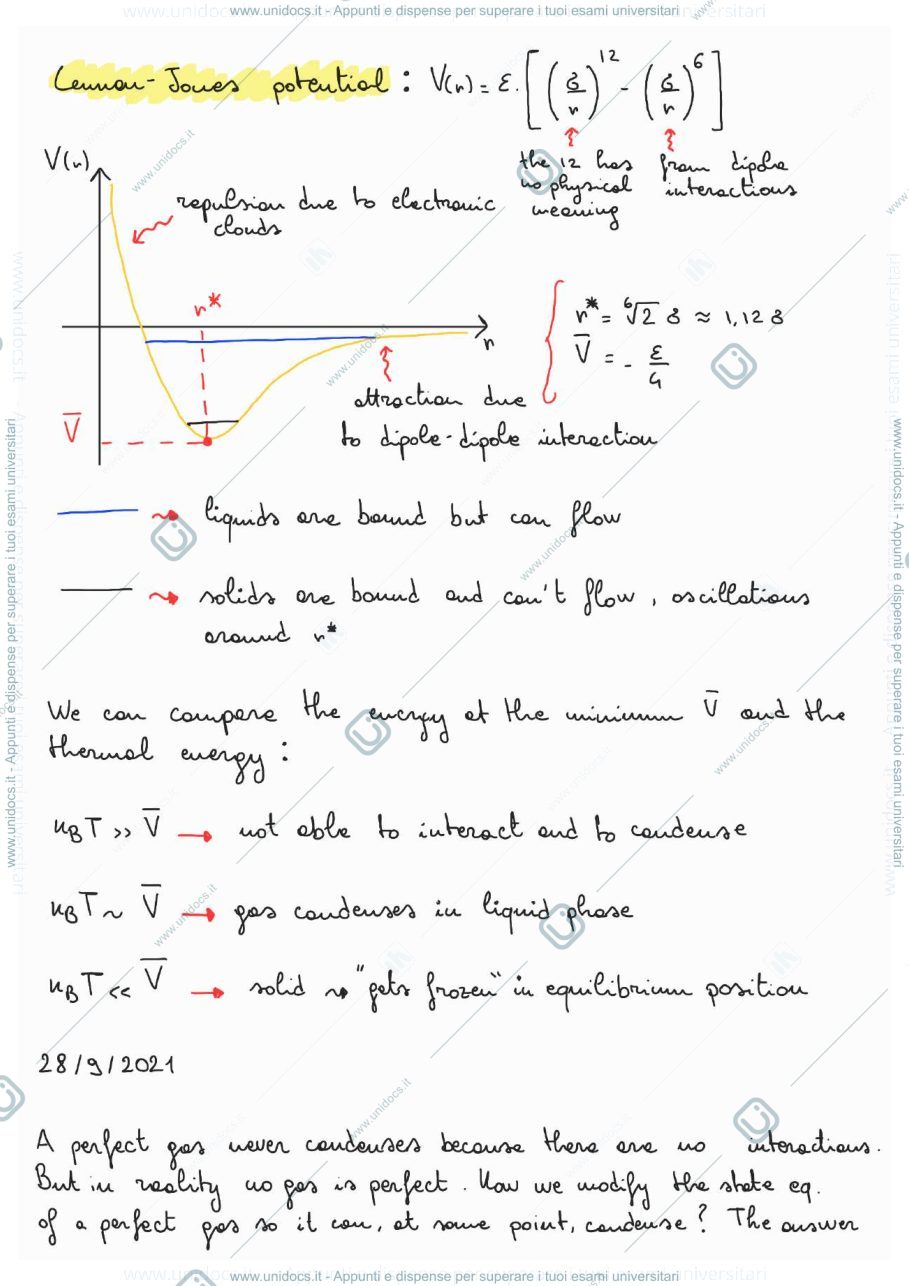 www.unidocs.it - Appunti e dispense per superare i tuoi esami universitari
Lennon-Jones potential : V(r) = ε. [ (6/r)^12 - (6/r)^6 ]
the 12 has no physical meaning
from dipole interactions
V(r)
repulsion due to electronic
clouds
r*
r
r* = ⁶√2 6 ≈ 1,12 6
V̅ = - ε/4
attraction due
to dipole-dipole interaction
V̅
liquids are bound but can flow
solids are bound and can't flow, oscillations
around r*
We can compare the energy at the minimum V̅ and the
thermal energy :
kBT >> V̅ → not able to interact and to condense
kBT ~ V̅ → gas condenses in liquid phase
kBT << V̅ → solid ⇝ "gets frozen" in equilibrium position
28/9/2021
A perfect gas never condenses because there are no interactions.
But in reality no gas is perfect. How we modify the state eq.
of a perfect gas so it can, at some point, condense? The answer
www.unidocs.it - Appunti e dispense per superare i tuoi esami universitari